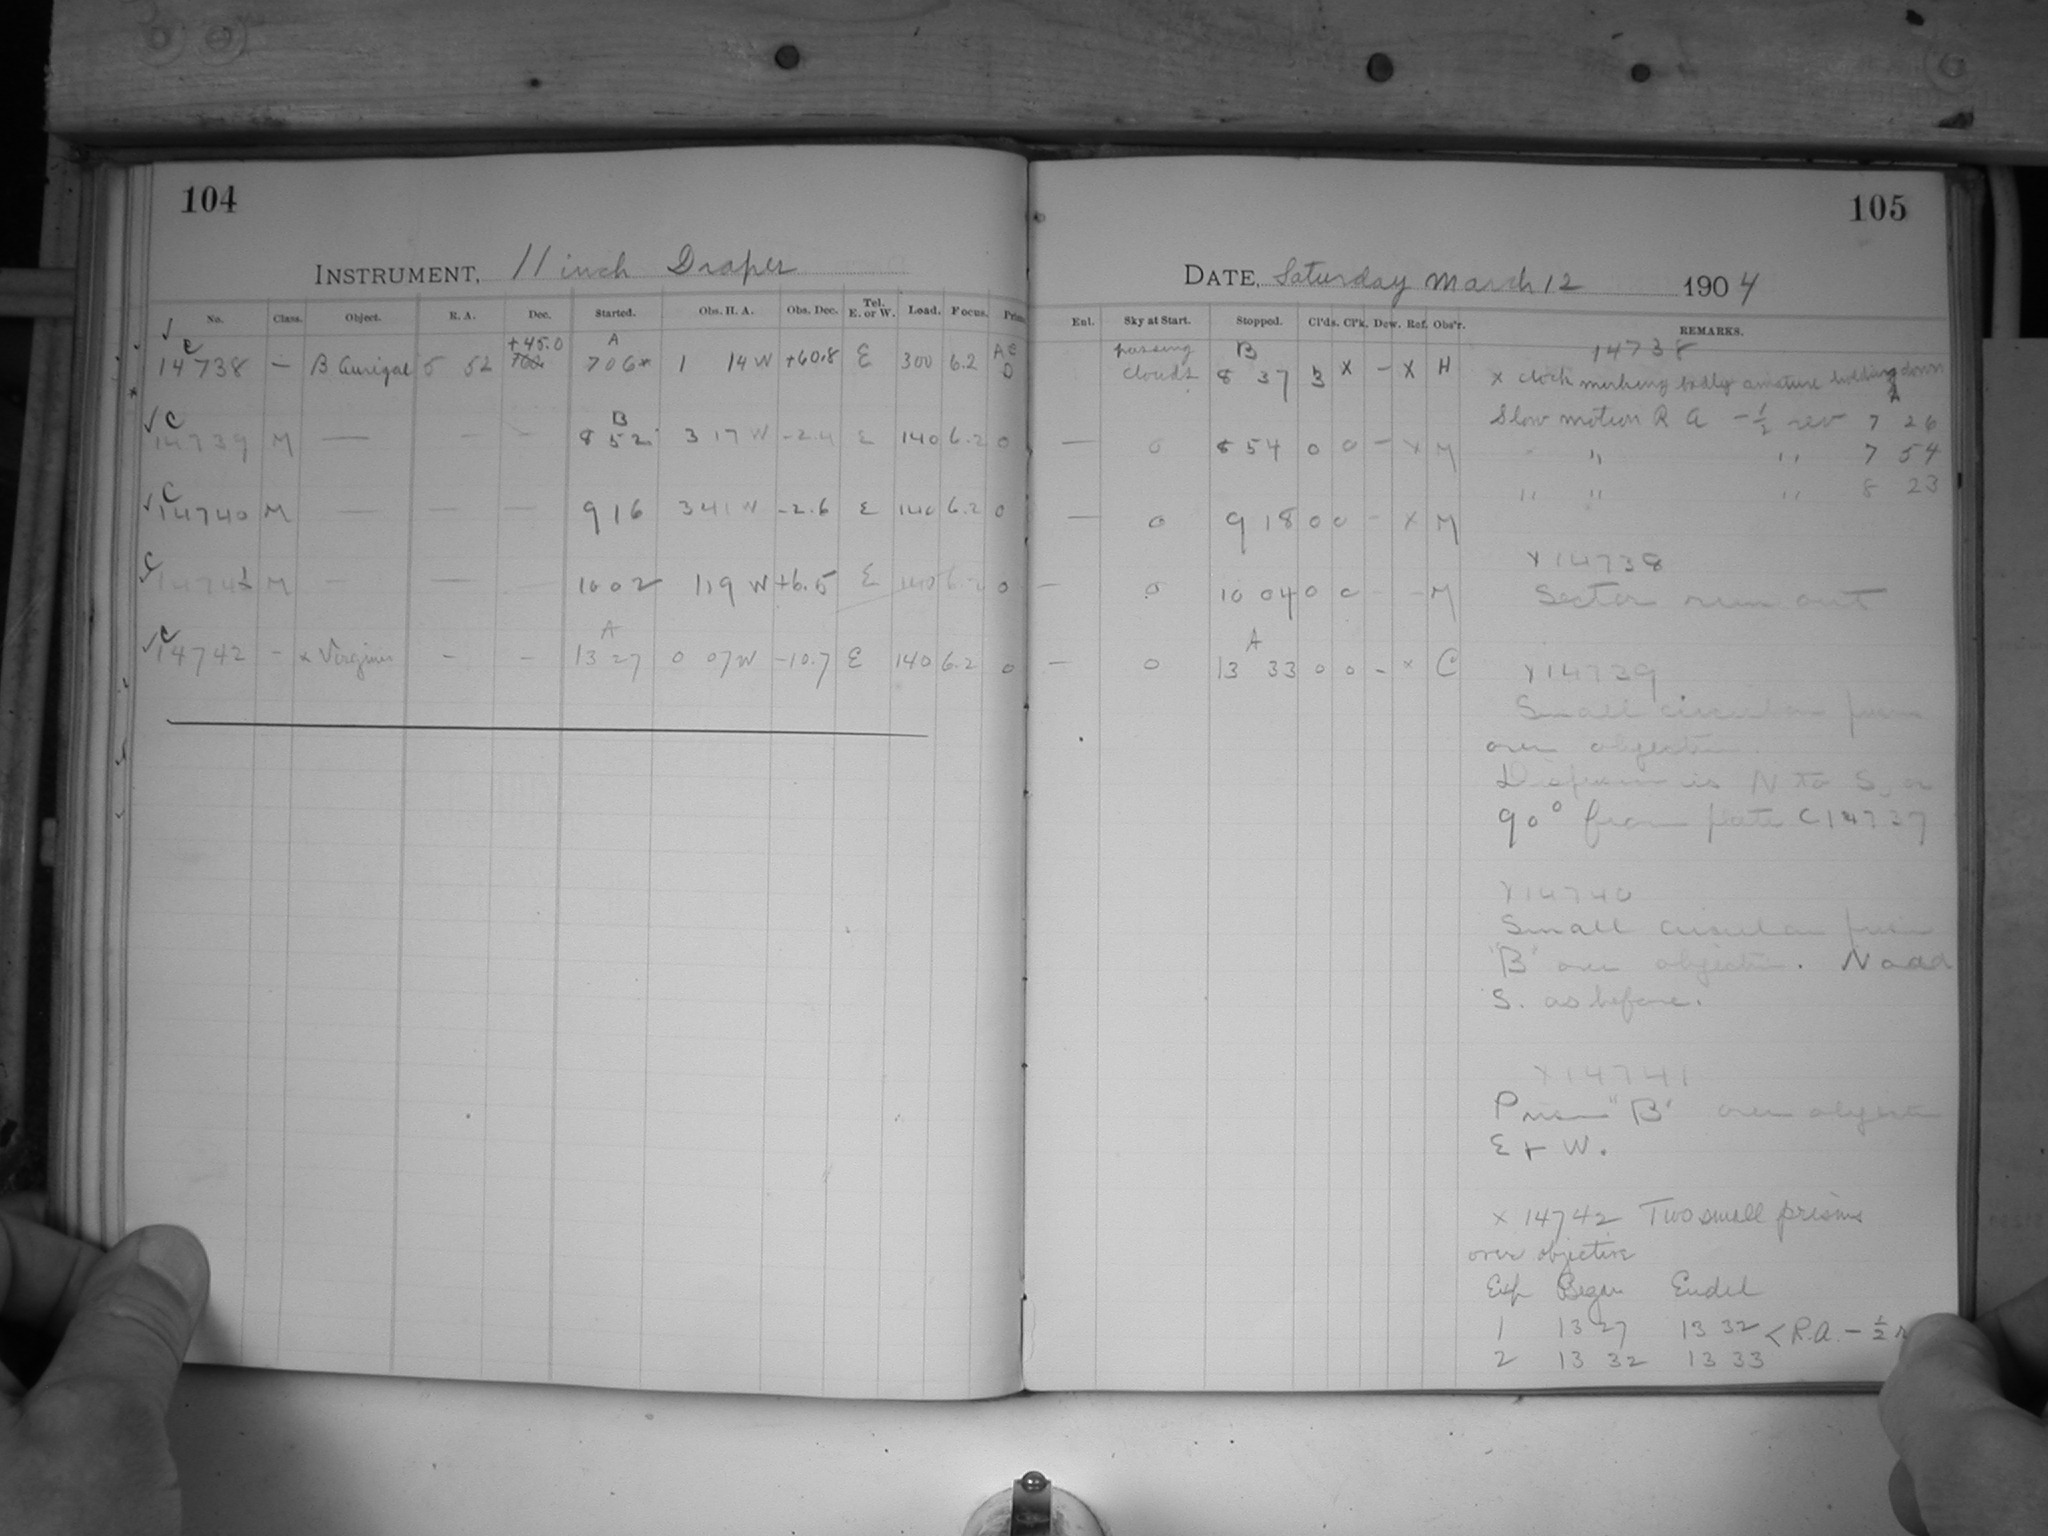 104
INSTRUMENT, 11 inch Draper
No. Class. Object. R. A. Dec. Started. Obs. H. A. Obs. Dec. Tel. E. or W. Load. Focus. Prism
+45.0 A
C 14738 — B Aurigae 5 52 706* 1 14 W +60.8 E 300 6.2
B
C 14739 M — — — 8 52 3 17 W -2.4 E 140 6.2 0
C 14740 M — — — 9 16 3 41 W -2.6 E 140 6.2 0
C 14741 M — — — 10 02 1 19 W +6.5 E 140 6.2 0
A
C 14742 – x Virginis – – 13 27 0 07 W -10.7 E 140 6.2 0
105
DATE, Saturday March 12 1904
Enl. Sky at Start. Stopped. Cl'ds. Cl'k. Dew. Ref. Obs'r. REMARKS.
passing clouds B 8 37 3 x – x H
— 0 8 54 0 0 – x M
— 0 9 18 0 0 – x M
— 0 10 04 0 0 - - M
A
— 0 13 33 0 0 - x C
14738
x clock working badly amature holding down
Slow motion R A - 1/2 rev 7 26
" " 7 54
" " " 8 23
x 14738
Sector run out
x 14739
Small circular prism
over objective.
Dispersion is N to S, or
90° from plate C 14737
x 14740
Small circular prism
"B" over objective. N and
S. as before.
x 14741
Prism "B" over objective
E + W.
x 14742 Two small prisms
over objective
Exp Began Ended
1 13 27 13 32 < R.A. - 1/2
2 13 32 13 33